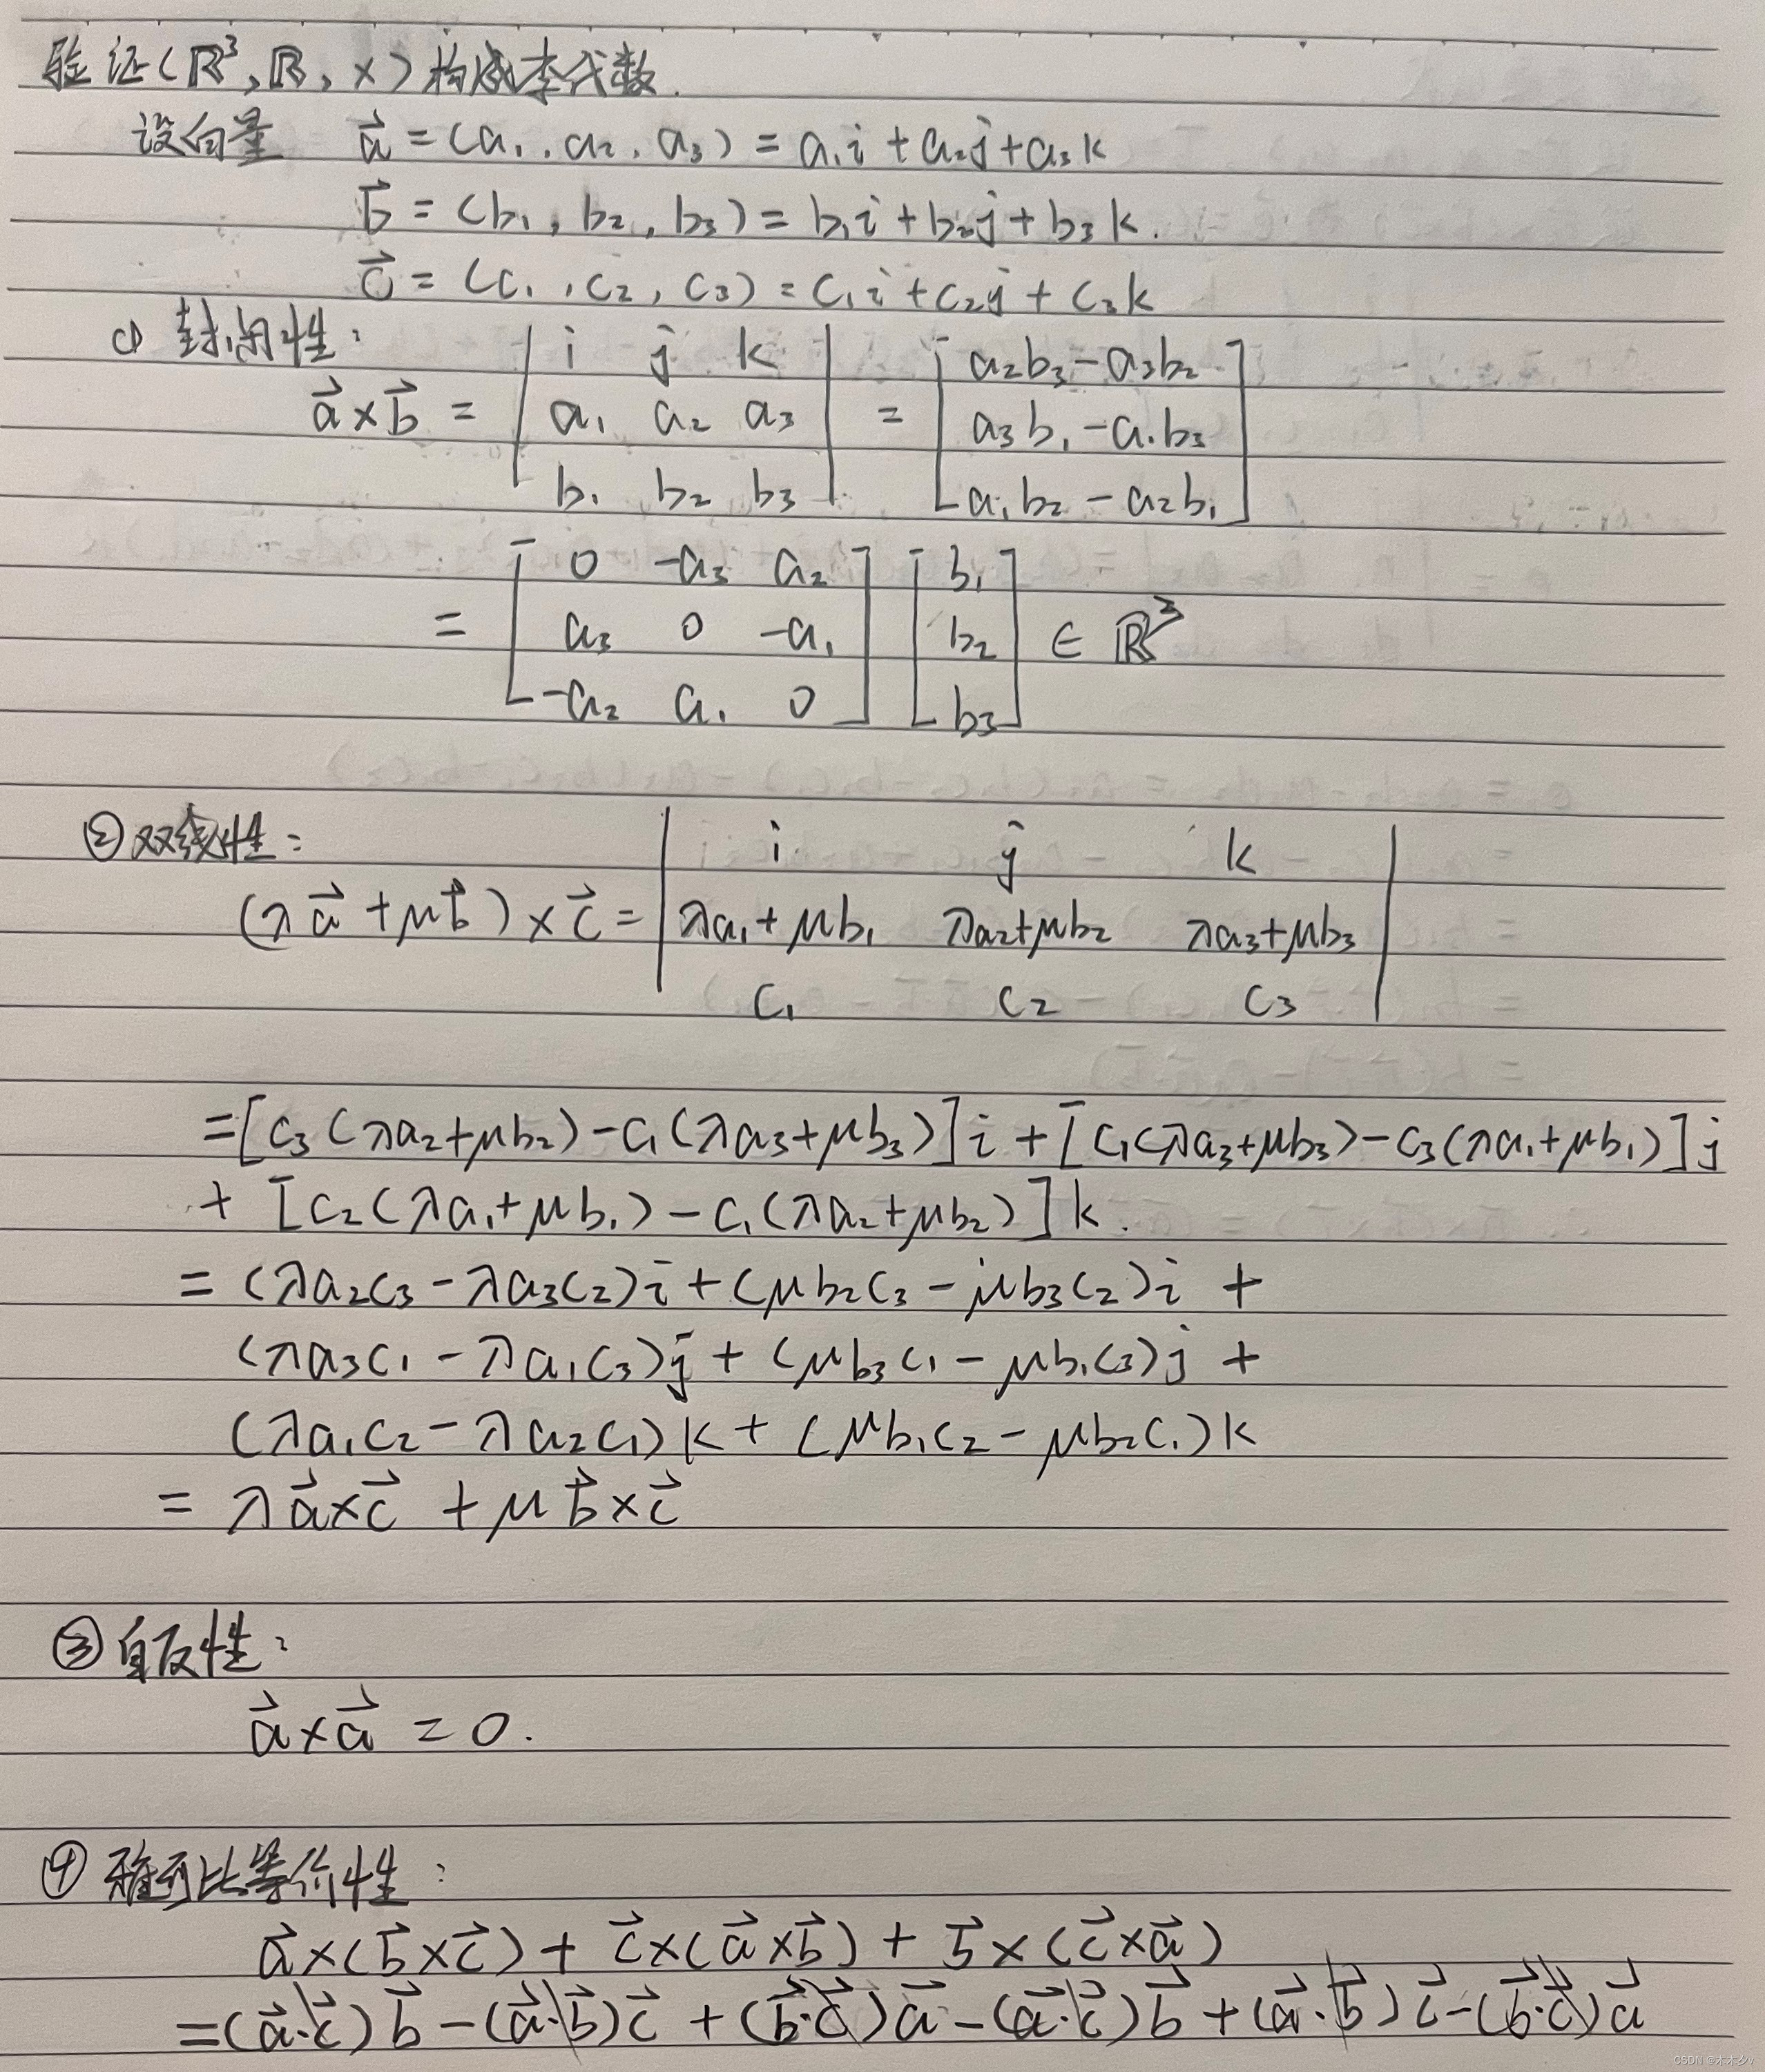 验证(ℝ³, ℝ, ×)构成李代数.
设向量 a⃗ = (a₁, a₂, a₃) = a₁i + a₂j + a₃k
b⃗ = (b₁, b₂, b₃) = b₁i + b₂j + b₃k.
c⃗ = (c₁, c₂, c₃) = c₁i + c₂j + c₃k
① 封闭性:
a⃗×b⃗ = | i j k | = [ a₂b₃-a₃b₂ ]
| a₁ a₂ a₃ | [ a₃b₁-a₁b₃ ]
| b₁ b₂ b₃ | [ a₁b₂-a₂b₁ ]
= [ 0 -a₃ a₂ ] [ b₁ ]
[ a₃ 0 -a₁ ] [ b₂ ] ∈ ℝ³
[ -a₂ a₁ 0 ] [ b₃ ]
② 双线性:
(λa⃗ + μb⃗) × c⃗ = | i j k |
| λa₁+μb₁ λa₂+μb₂ λa₃+μb₃ |
| c₁ c₂ c₃ |
= [c₃(λa₂+μb₂) - c₁(λa₃+μb₃)]i + [c₁(λa₃+μb₃) - c₃(λa₁+μb₁)]j
+ [c₂(λa₁+μb₁) - c₁(λa₂+μb₂)]k.
= (λa₂c₃ - λa₃c₂)i + (μb₂c₃ - μb₃c₂)i +
(λa₃c₁ - λa₁c₃)j + (μb₃c₁ - μb₁c₃)j +
(λa₁c₂ - λa₂c₁)k + (μb₁c₂ - μb₂c₁)k
= λa⃗×c⃗ + μb⃗×c⃗
③ 自反性:
a⃗×a⃗ = 0.
④ 雅可比等价性:
a⃗×(b⃗×c⃗) + c⃗×(a⃗×b⃗) + b⃗×(c⃗×a⃗)
= (a⃗·c⃗)b⃗ - (a⃗·b⃗)c⃗ + (b⃗·c⃗)a⃗ - (a⃗·c⃗)b⃗ + (a⃗·b⃗)c⃗ - (b⃗·c⃗)a⃗
CSDN @木木夕v